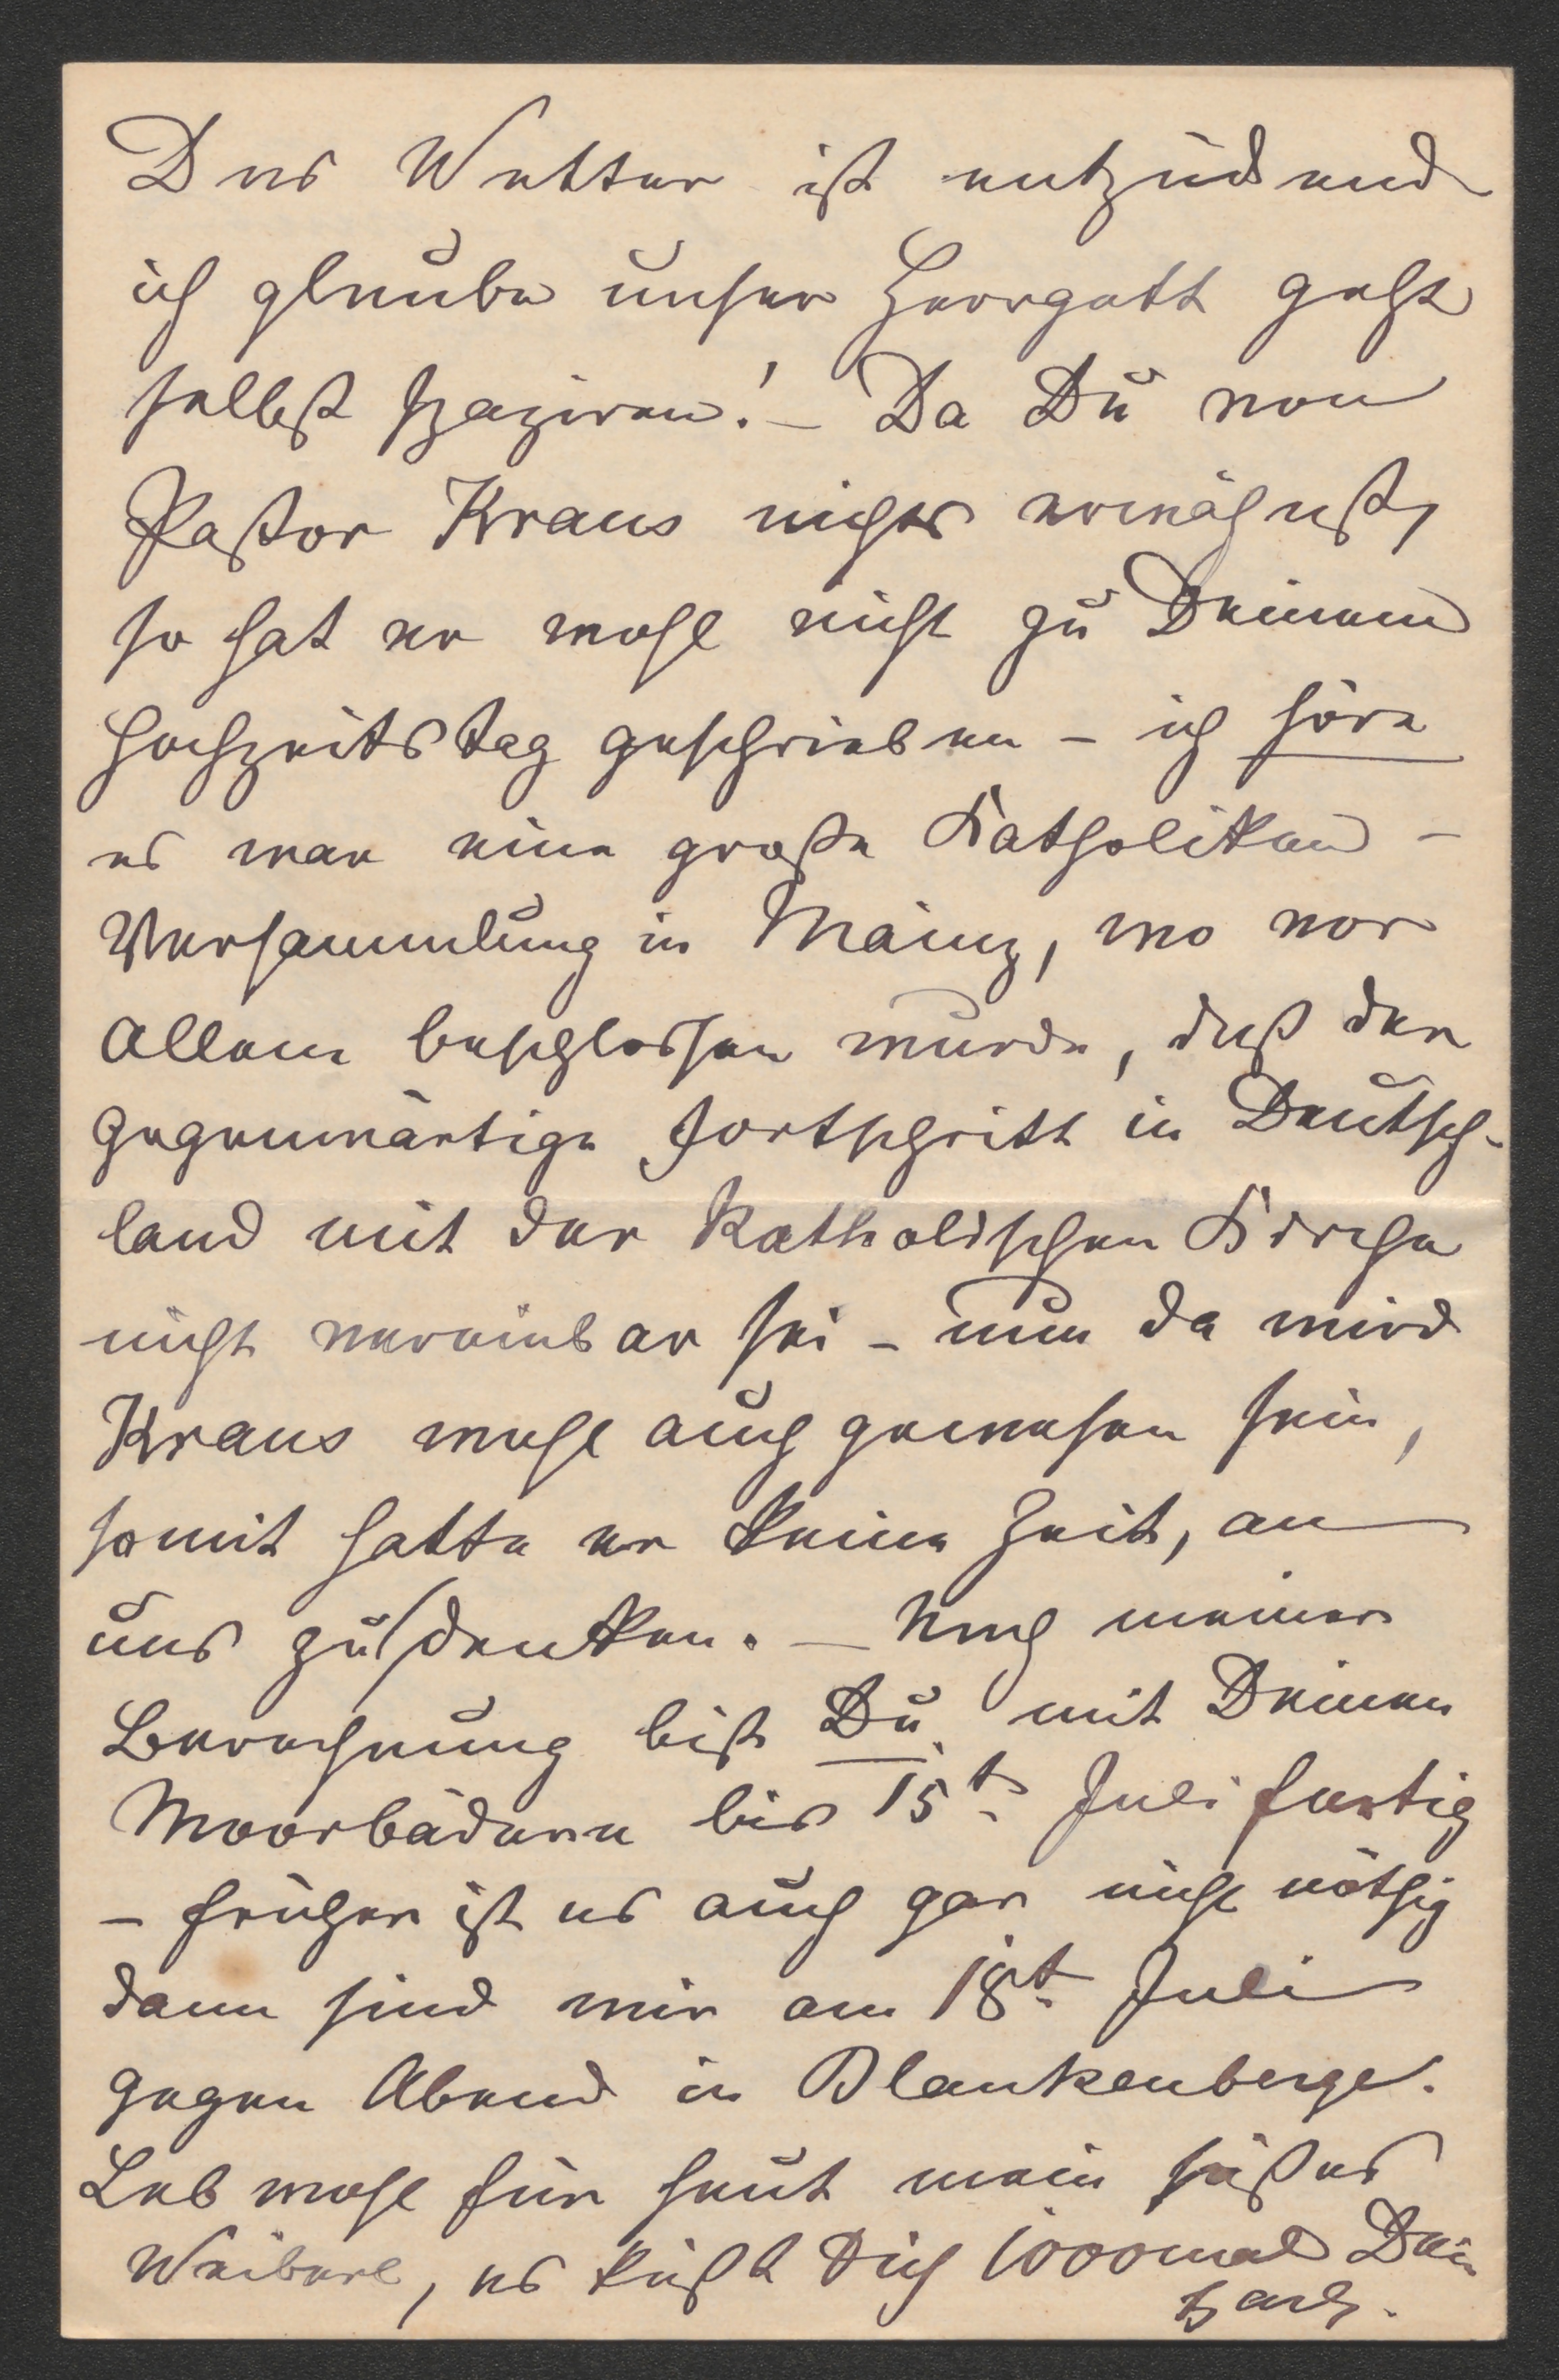 Das Wetter ist entzückend
ich glaube unser Herrgott geht
selbst spaziren! – Da Du von
Pastor Kraus nichts erwähnst,
so hat er wohl nicht zu Deinem
Hochzeitstag geschrieben – ich höre
es war eine große Katholiken –
Versammlung in Mainz, wo vor
Allem beschlossen wurde, daß der
gegenwärtige Fortschritt in Deutsch-
land mit der katholischen Kirche
nicht vereinbar sei – nun da wird
Kraus wohl auch gewesen sein,
somit hatte er keine Zeit, an
uns zu denken. – Nach meiner
Berechnung bist Du mit Deinen
Moorbädern bis 15t. Juli fertig
– früher ist es auch gar nicht nöthig
dann sind wir am 18t. Juli
gegen Abend in Blankenberge.
Leb wohl für heut mein süßes
Weiberl, es küßt Dich 1000mal Dein